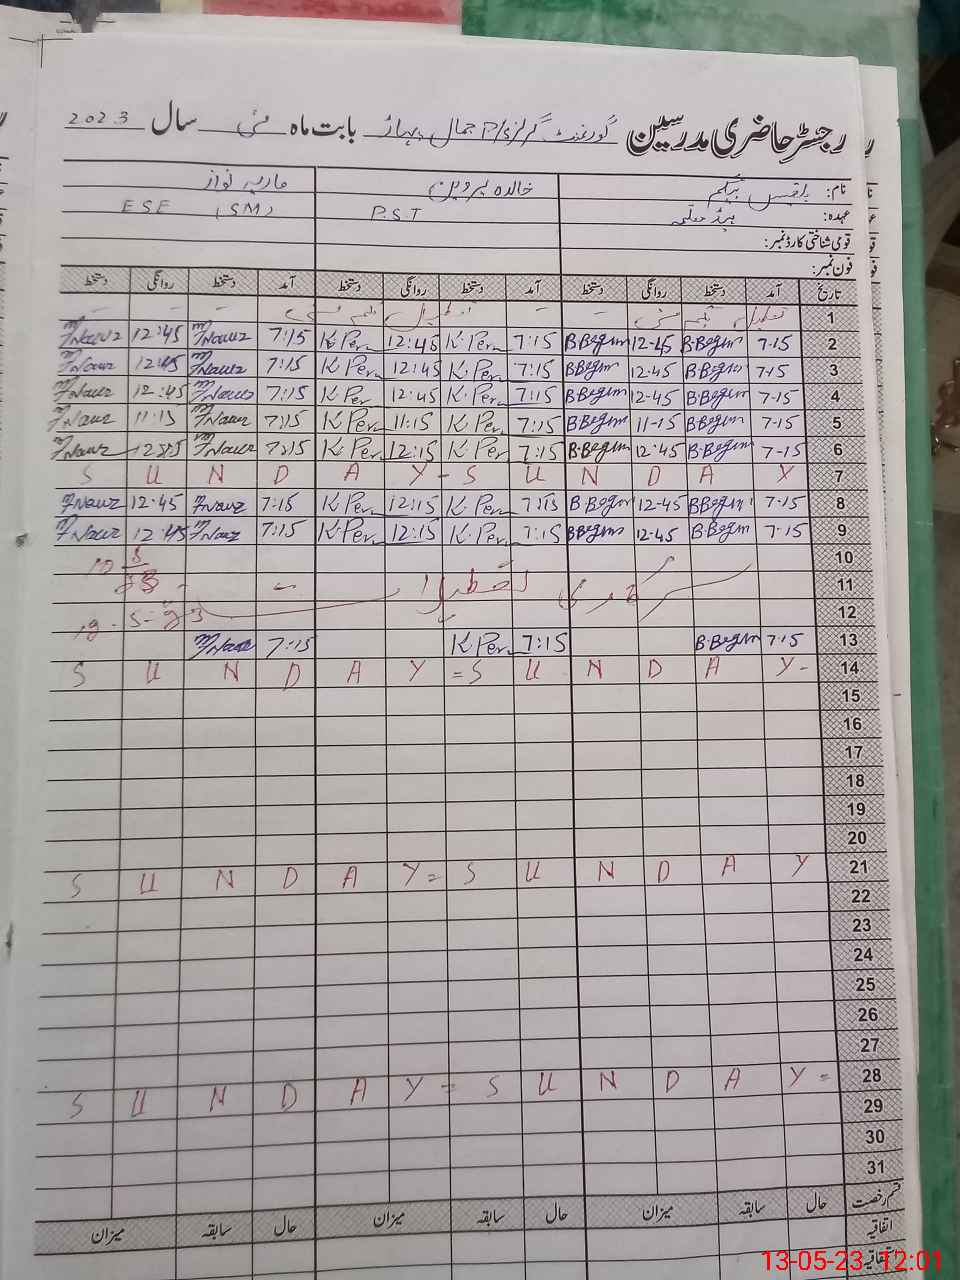 رجسٹر حاضری مدرسین گورنمنٹ گرلز P/ جمال پہاڑ بابت ماہ مئی سال 2023
نام: بلقیس بیگم خالدہ پروین ماریہ نواز
عہدہ: ہیڈ معلمہ P.S.T ESE (SM)
قومی شناختی کارڈ نمبر:
فون نمبر:
تاریخ آمد دستخط روانگی دستخط آمد دستخط روانگی دستخط آمد دستخط روانگی دستخط
1
2 7-15 B.Begum 12-45 B.Begum 7:15 K.Per 12:45 K.Per 7:15 M Nawz 12:45 M Nawz
3 7-15 B.Begum 12-45 BBegum 7:15 K.Per 12:45 K.Per 7:15 M Nawz 12:45 M Nawz
4 7-15 B.Begum 12-45 BBegum 7:15 K.Per 12:45 K.Per 7:15 M Nawz 12:45 M Nawz
5 7-15 B.Begum 11-15 BBegum 7:15 K.Per 11:15 K.Per 7:15 M Nawz 11:15 M Nawz
6 7-15 B.Begum 12:45 B.Begum 7:15 K.Per 12:15 K.Per 7:15 M Nawz M Nawz
7 S U N D A Y - S U N D A Y
8 7-15 BBegum 12-45 B.Begum 7:15 K.Per 12:15 K.Per 7:15 M Nawz 12:45 M Nawz
9 7-15 B.Begum 12-45 BBegum 7:15 K.Per 12:15 K.Per 7:15 M Nawz 12:45 M Nawz
10
11 سرکاری تعطیلات
12
13 7-15 B.Begum 7:15 K.Per 7:15 M Nawz
14 S U N D A Y = S U N D A Y -
15
16
17
18
19
20
21 S U N D A Y = S U N D A Y
22
23
24
25
26
27
28 S U N D A Y = S U N D A Y =
29
30
31
قسم رخصت حال سابقہ میزان حال سابقہ میزان حال سابقہ میزان
اتفاقیہ
13-05-23 12:01